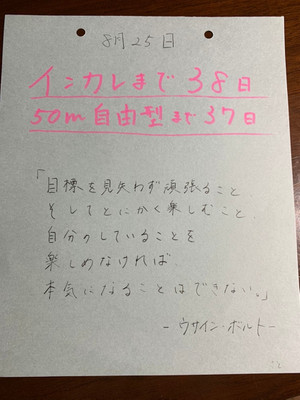 8月25日
インカレまで38日
50m自由型まで37日
「目標を見失わず頑張ること
そしてとにかく楽しむこと
自分のしていることを
楽しめなければ
本気になることはできない。」
-ウサイン・ボルト-